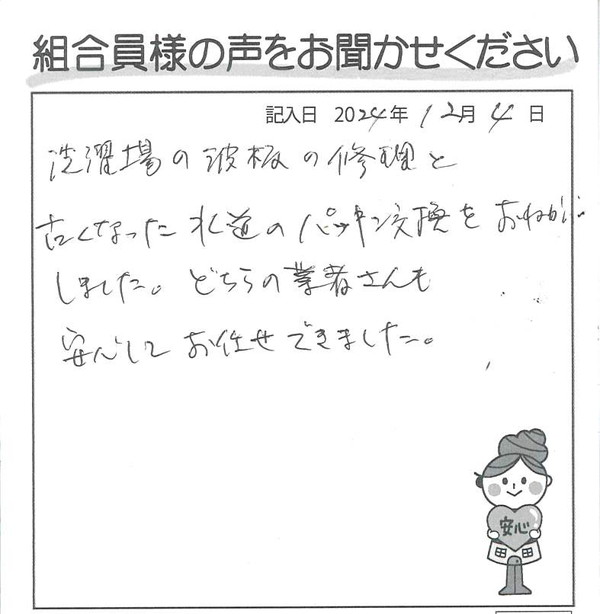 組合員様の声をお聞かせください
記入日 2024年 12月 4日
洗濯場の波板の修理と
古くなった水道のパッキン交換をおねがい
しました。どちらの業者さんも
安心してお任せできました。
安心